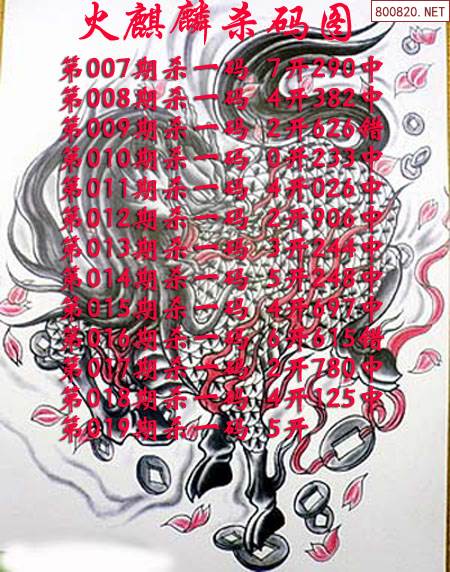 800820.NET
火麒麟杀码图
第007期杀一码 7开290中
第008期杀一码 4开382中
第009期杀一码 2开626错
第010期杀一码 0开233中
第011期杀一码 4开026中
第012期杀一码 2开906中
第013期杀一码 3开244中
第014期杀一码 5开248中
第015期杀一码 4开697中
第016期杀一码 6开615错
第017期杀一码 2开780中
第018期杀一码 4开125中
第019期杀一码 5开